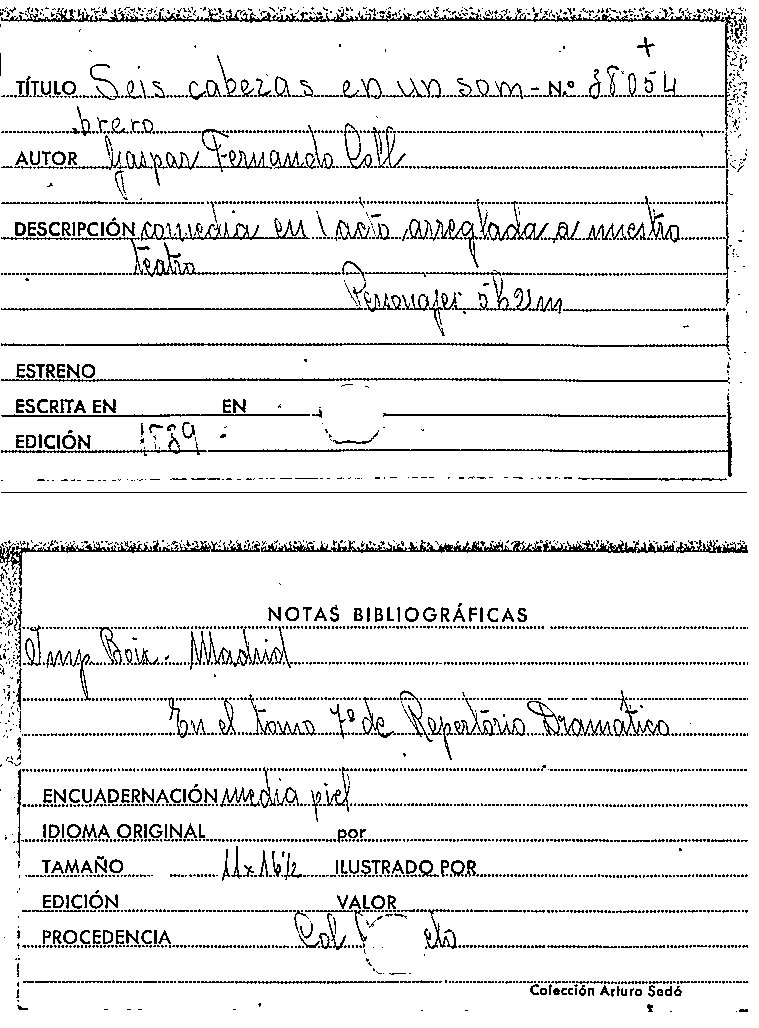 +
TÍTULO Seis cabezas en un som- N.º 38054
brero
AUTOR Gaspar Fernando Coll
DESCRIPCIÓN comedia en 1 acto arreglada a nuestro
teatro
Personajes: 5h 2m
ESTRENO
ESCRITA EN EN
EDICIÓN
NOTAS BIBLIOGRÁFICAS
Imp Boix - Madrid
En el tomo 7º de Repertorio Dramático
ENCUADERNACIÓN media piel
IDIOMA ORIGINAL por
TAMAÑO 11 x 16½ ILUSTRADO POR
EDICIÓN VALOR
PROCEDENCIA Col
Colección Arturo Sedó